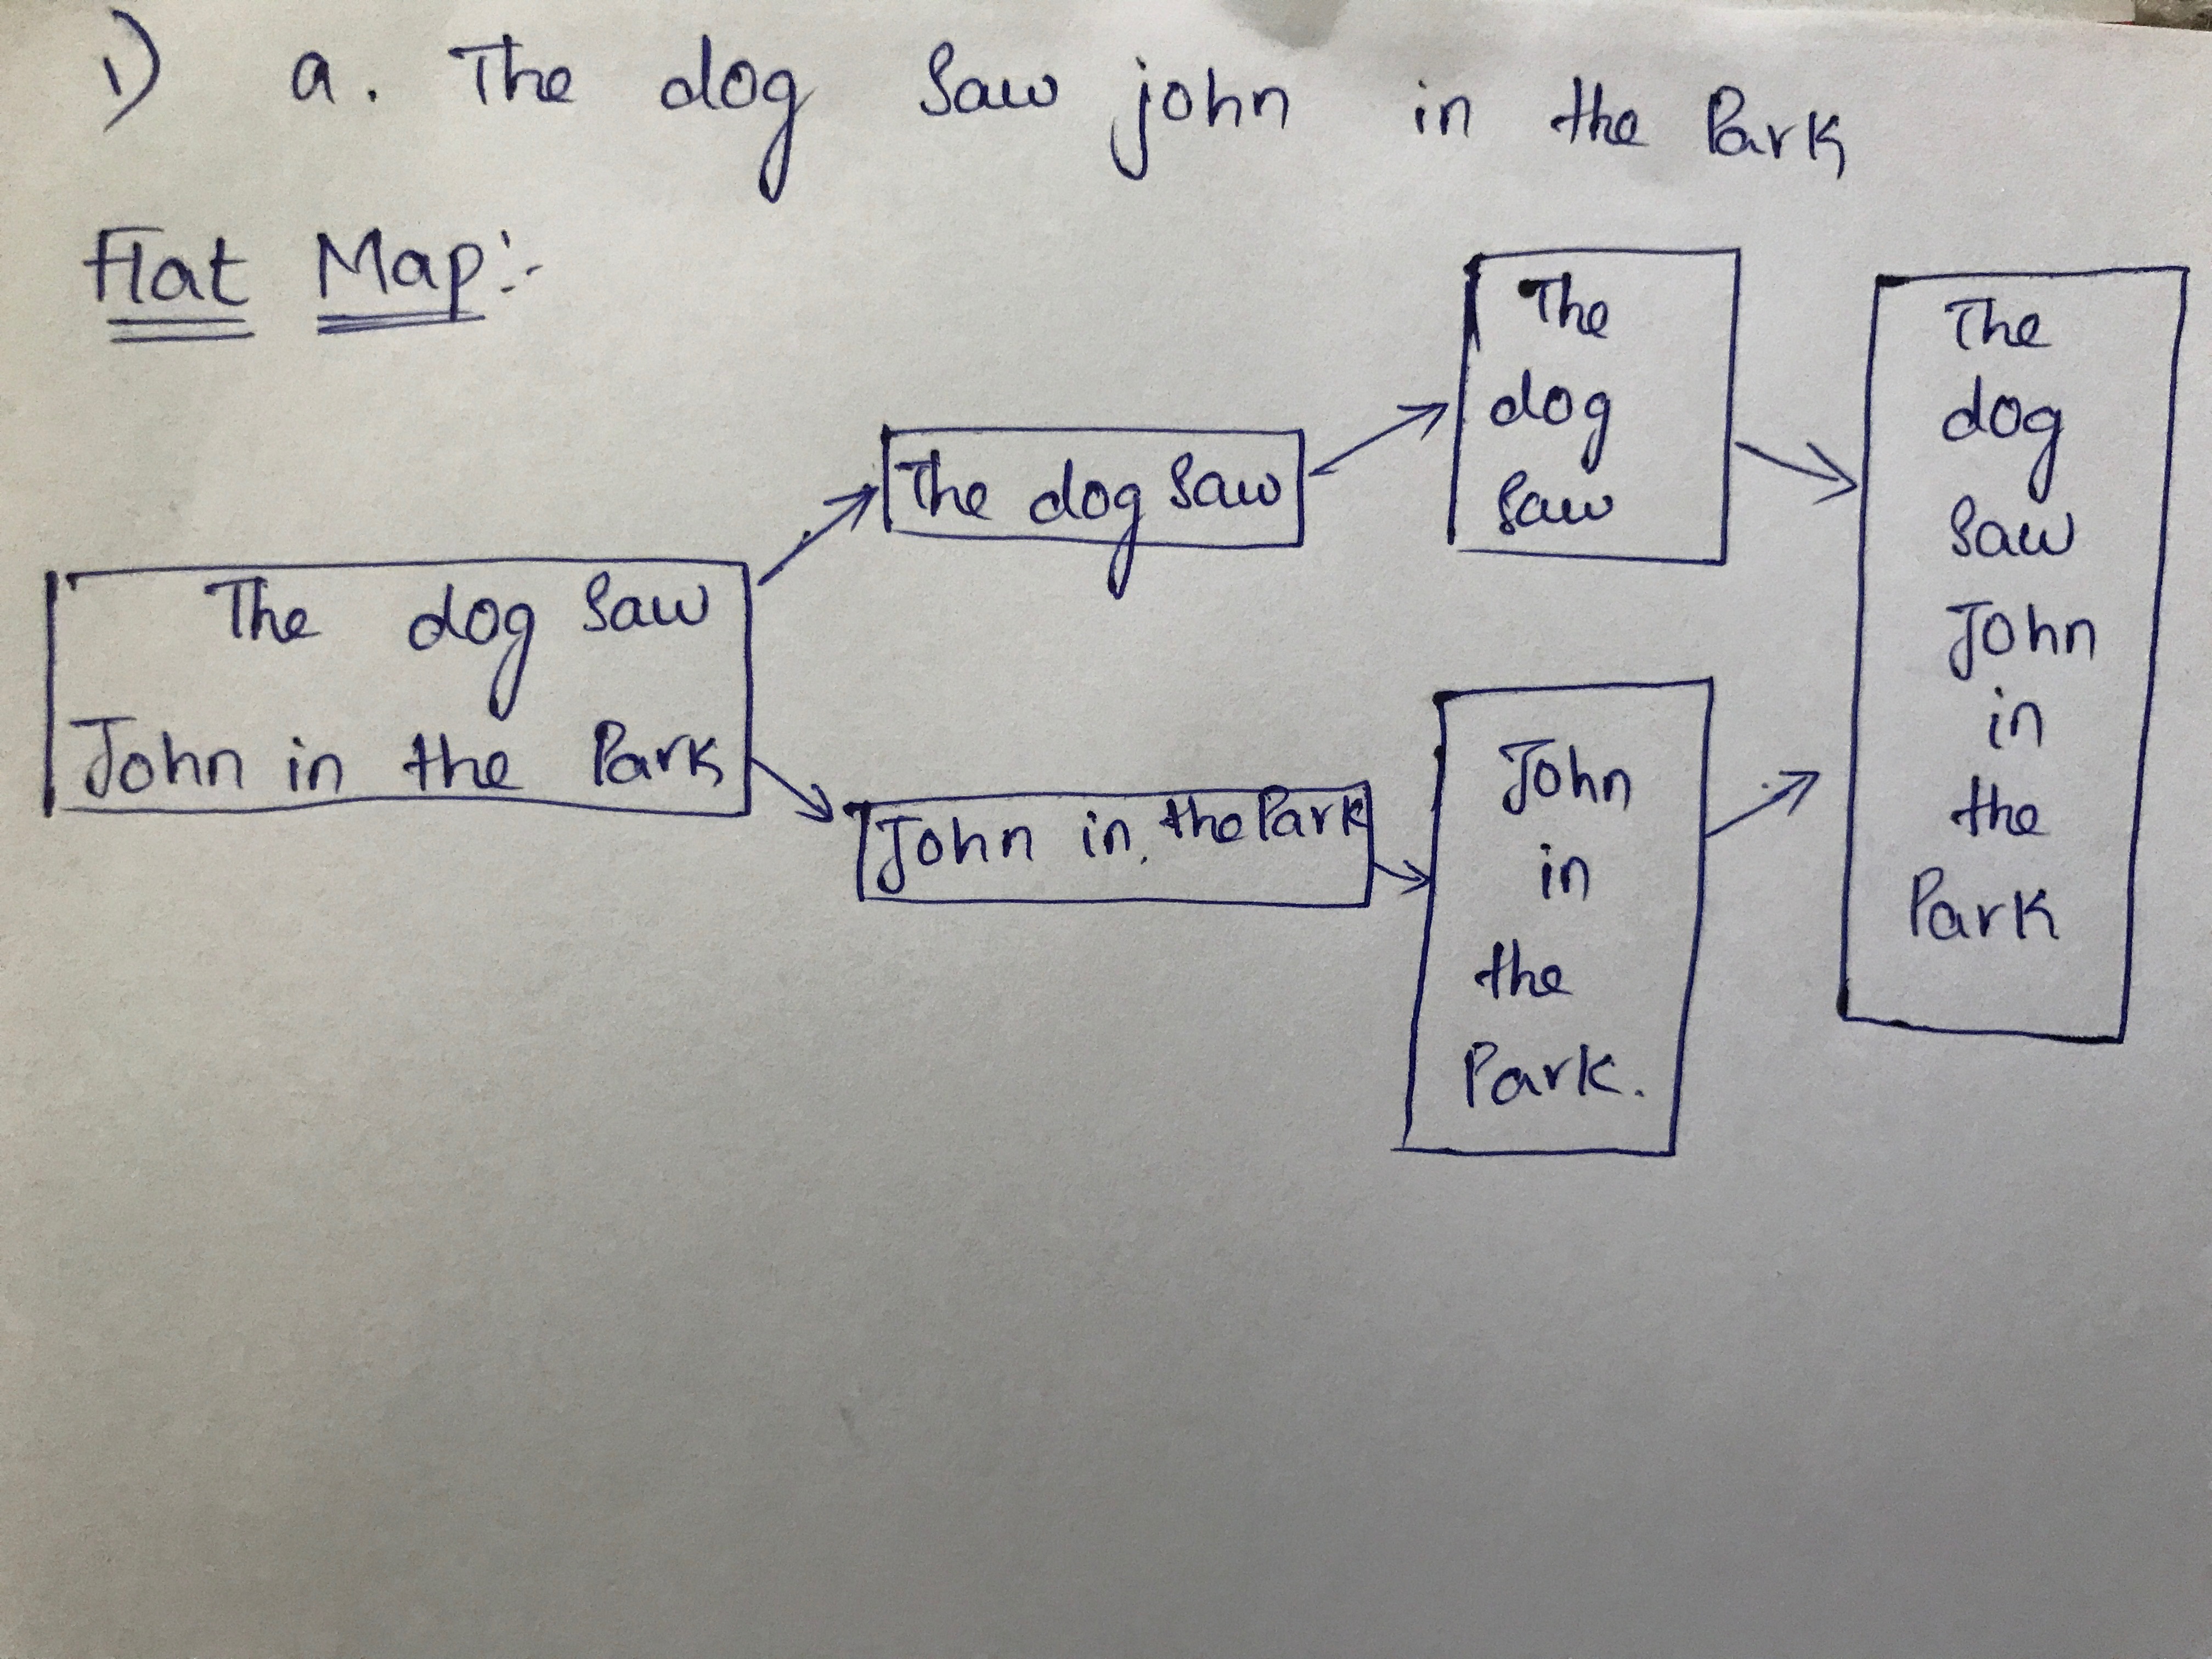 1) a. The dog saw john in the Park
Flat Map:-
The dog saw
John in the Park
The dog saw
John in the Park
The
dog
saw
John
in
the
Park.
The
dog
saw
John
in
the
Park